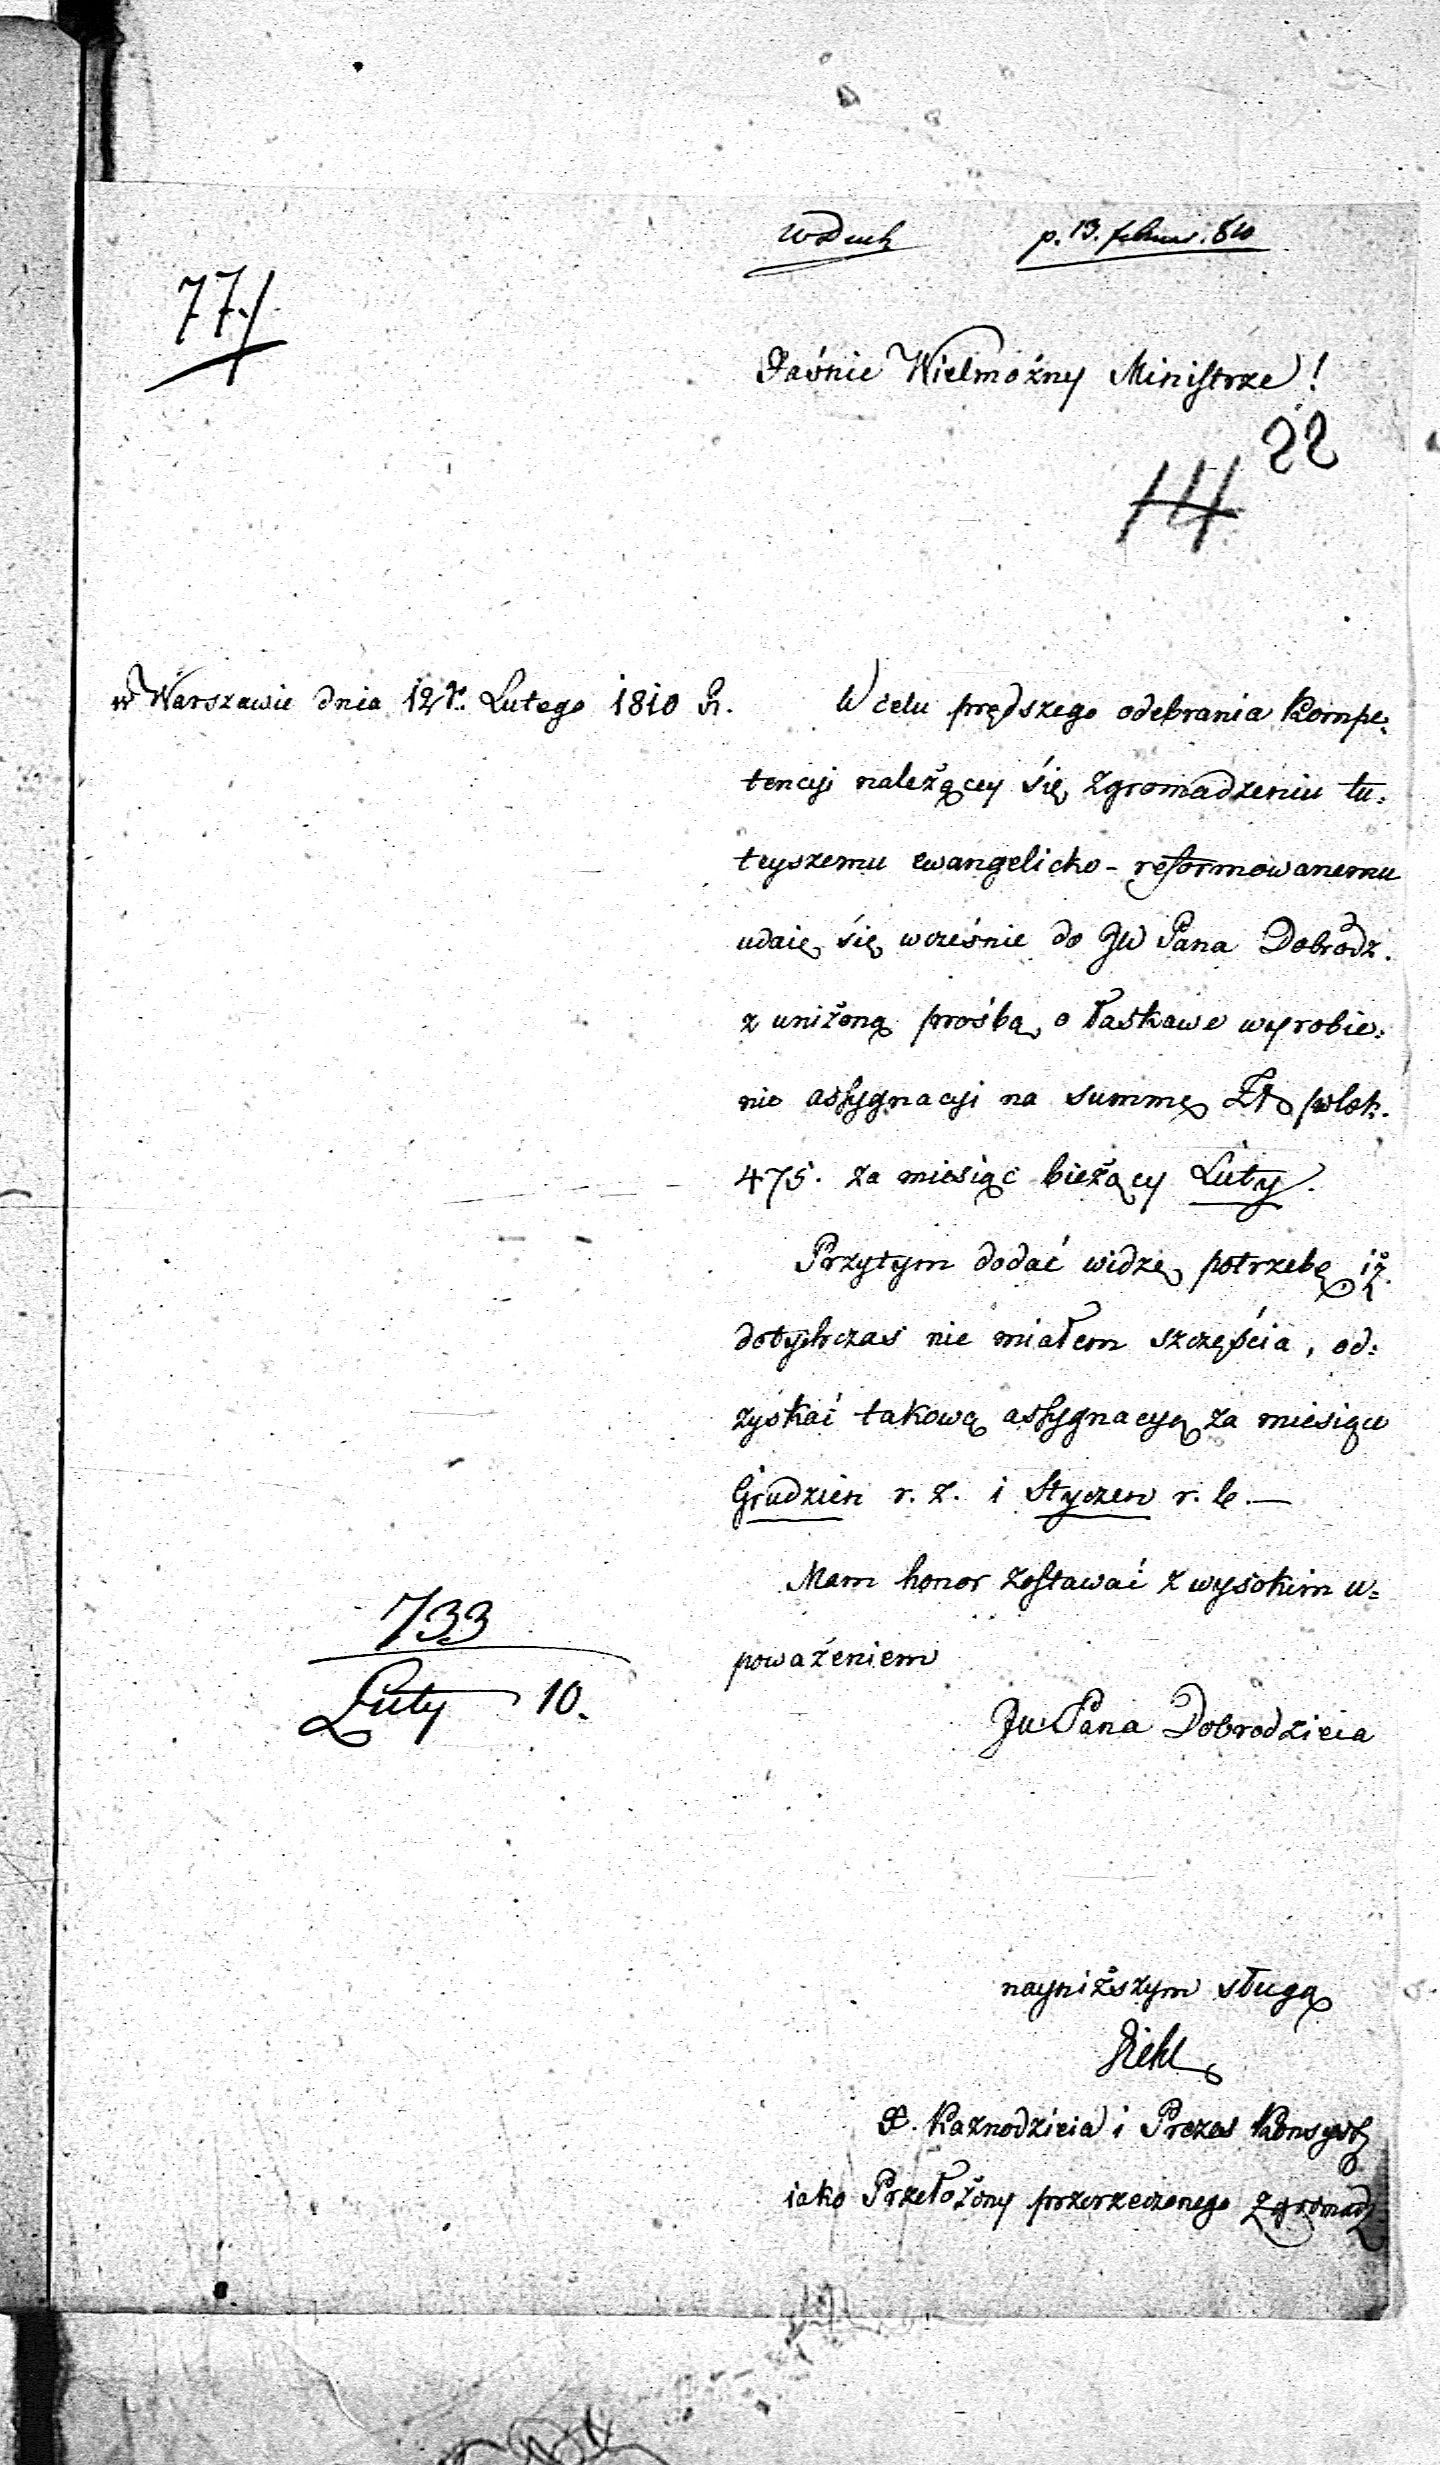 WDuch p. 13. februar. 810
77/
Jaśnie Wielmożny Ministrze!
22
14
w Warszawie dnia 12go. Lutego 1810 R.
W celu prędszego odebrania Kompe:
tencyi należącey się zgromadzeniu tu:
teyszemu ewangelicko-reformowanemu
udaię się wcześnie do JW Pana Dobrodz.
z uniżoną prośbą o łaskawe wyrobie:
nie assygnacyi na summę Zł polsk.
475. za miesiąc bieżący Luty.
Przytym dodać widzę potrzebę iż
dotychczas nie miałem szczęścia, od:
zyskać takową assygnacyą za miesiące
Grudzień r. z. i Styczen r. b. —
Mam honor zostawać z wysokim u=
poważeniem
JW Pana Dobrodzieia
733
Luty 10.
nayniższym sługą
Diehl
X. Kaznodzieia i Prezes Konsyst
iako Przełożony przerzeczonego Zgromadz